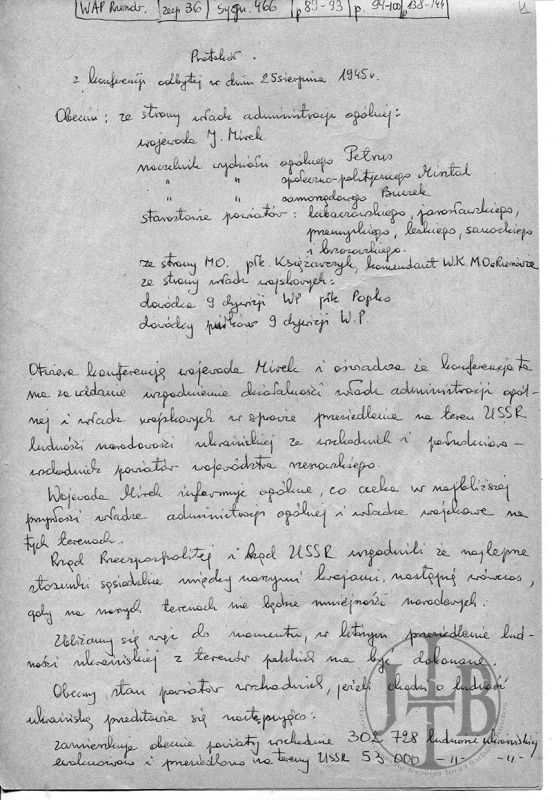 WAP Rzeszów. zesp 36 Sygn. 466 p 89-93 p. 94-100 p 138-144
Protokół.
z konferencji odbytej w dniu 25 sierpnia 1945 r.
Obecni: ze strony władz administracji ogólnej:
wojewoda J. Mirek
naczelnik wydziału ogólnego Petrus
" " społeczno-politycznego Mirtal
" " samorządowego Buczek
starostowie powiatów: lubaczowskiego, jarosławskiego,
przemyskiego, leskiego, sanockiego
i brzozowskiego.
ze strony MO. płk. Księżarczyk, komendant W.K.M.O w Rzeszowie
ze strony władz wojskowych:
dowódca 9 dywizji WP płk Popko
dowódcy pułków 9 dywizji W.P.
Otwiera konferencję wojewoda Mirek i oświadcza że konferencja ta
ma za zadanie uzgodnienie działalności władz administracji ogól-
nej i władz wojskowych w sprawie przesiedlenia na teren USSR
ludności narodowości ukraińskiej ze wschodnich i południowo-
wschodnich powiatów województwa rzeszowskiego.
Wojewoda Mirek informuje ogólnie, co czeka w najbliższej
przyszłości władze administracji ogólnej i władze wojskowe na
tych terenach.
Rząd Rzeczpospolitej i Rząd USSR uzgodnili że najlepsze
stosunki sąsiedzkie między naszymi krajami, nastąpią wówczas,
gdy na naszych terenach nie będzie mniejszości narodowych.
Zbliżamy się więc do momentu, w którym przesiedlenie lud-
ności ukraińskiej z terenów polskich ma być dokonane.
Obecny stan powiatów wschodnich, jeżeli chodzi o ludność
ukraińską przedstawia się następująco:
zamieszkuje obecnie powiaty wschodnie 302 728 ludności ukraińskiej
ewakuowano i przesiedlono na tereny USSR 53 000 -"- -"-
JTB